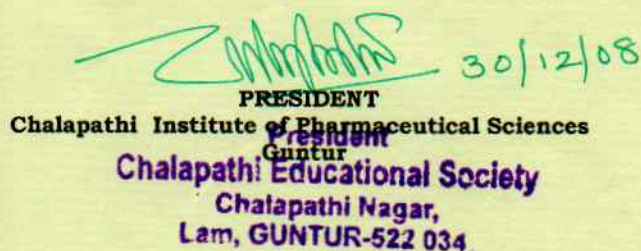 30/12/08
PRESIDENT
Chalapathi Institute of Pharmaceutical Sciences
President
Guntur
Chalapathi Educational Society
Chalapathi Nagar,
Lam, GUNTUR-522 034